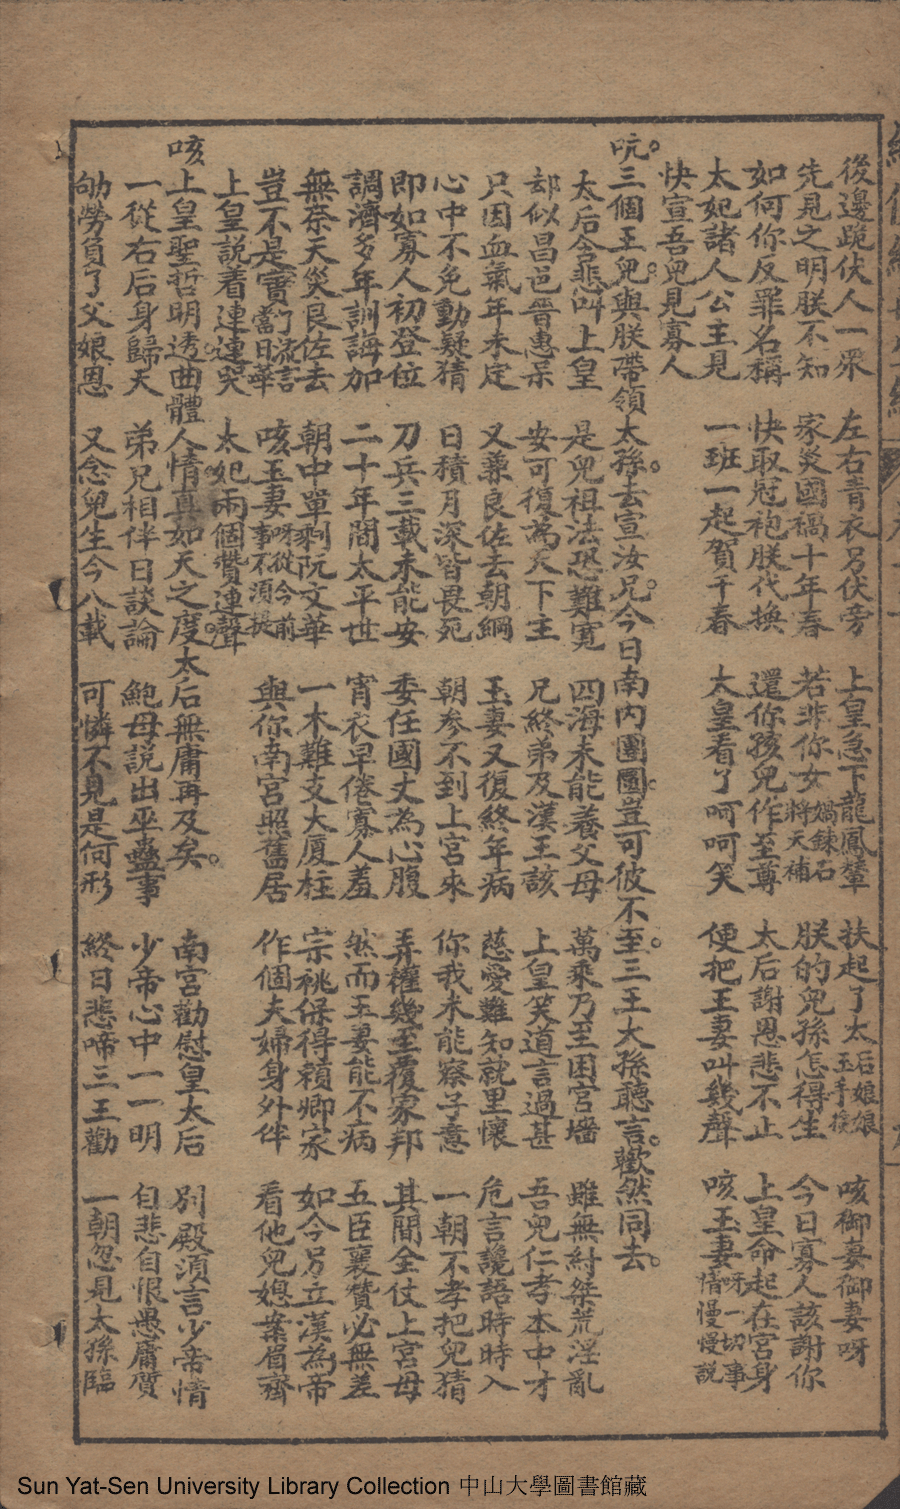 後邊跪伏人一眾 左右青衣另伏旁 上皇急下龍鳳輦 扶起了太后娘娘玉手挽 咳御妻御妻呀
先見之明朕不知 家災國禍十年春 若非你女媧鍊石將天補 朕的兒孫怎得生 今日寡人該謝你
如何你反罪名稱 快取冠袍朕代換 還你孩兒作至尊 太后謝恩悲不止 上皇命起在宮身
太妃諸人公主見 一班一起賀千春 太皇看了呵呵笑 便把王妻叫幾聲 咳玉妻呀一切事情慢慢說
快宣吾兒見寡人
吭。三個王兒。與朕帶領太孫。去宣汝兄。今日南內團圓。豈可彼不至。三王大孫聽言。歡然同去。
太后含悲叫上皇 是兒祖法恐難寬 四海未能養父母 萬乘乃至困宮墻 雖無紂桀荒淫亂
却似昌邑晉惠呆 安可復為天下主 兄終弟及漢王該 上皇笑道言過甚 吾兒仁孝本中才
只因血氣年未定 又兼良佐去朝綱 玉妻又復終年病 慈愛難知就里懷 危言讒語時時入
心中不免動疑猜 日積月深皆畏死 朝參不到上宮來 你我未能察子意 一朝不孝把兒猜
即如寡人初登位 刀兵三載未能安 委任國丈為心腹 弄權幾至覆家邦 其間全仗上宮母
調濟多年訓誨加 二十年間太平世 宵衣早倦寡人羞 然而玉妻能不病 五臣襄贊必無差
無奈天災良佐去 朝中單剩阮文華 一木難支大厦柱 宗祧保得賴卿家 如今另立漢為帝
豈不是實了流言當日華 咳玉妻呀從今前事不須提 與你南宮照舊居 作個夫婦身外伴 看他兒媳案眉齊
上皇說着連連哭 太妃兩個贊連聲
咳上皇聖哲明透。曲體人情。真如天之度。太后無庸再及矣。 南宮勸慰皇太后 別殿須言少帝情
一從右后身歸天 弟兄相伴日談論 鮑母說出巫蠱事 少帝心中一一明 自悲自恨愚庸質
劬勞負了父娘恩 又念兒生今八載 可憐不見是何形 終日悲啼三王勸 一朝忽見太孫臨
Sun Yat-Sen University Library Collection 中山大學圖書館藏